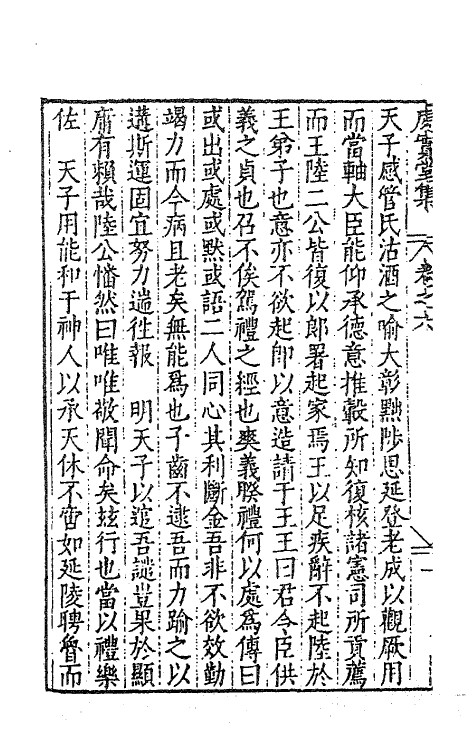 處實堂集 卷之六 一
天子感管氏沽酒之喻大彰黜陟思延登老成以觀厥用
而當軸大臣能仰承德意推轂所知復核諸憲司所貢薦
而王陸二公皆復以郎署起家焉王以足疾辭不起陸於
王弟子也意亦不欲起卽以意造請于王王曰君令臣供
義之貞也召不俟駕禮之經也爽義睽禮何以處為傳曰
或出或處或默或語二人同心其利斷金吾非不欲效勤
竭力而今病且老矣無能為也子齒不逮吾而力踰之以
遘斯運固宜努力遄徃報 明天子以逭吾譴豈果於顯
庸有賴哉陸公憣然曰唯唯敬聞命矣玆行也當以禮樂
佐 天子用能和于神人以承天休不啻如延陵聘魯而